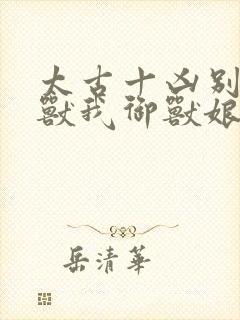 太古十凶别
獸我御獸娘
岳清華